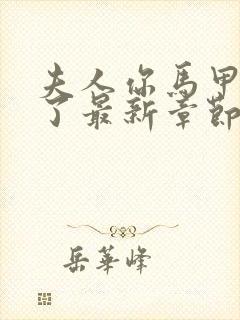 夫人你馬甲
了最新章節
岳華峰